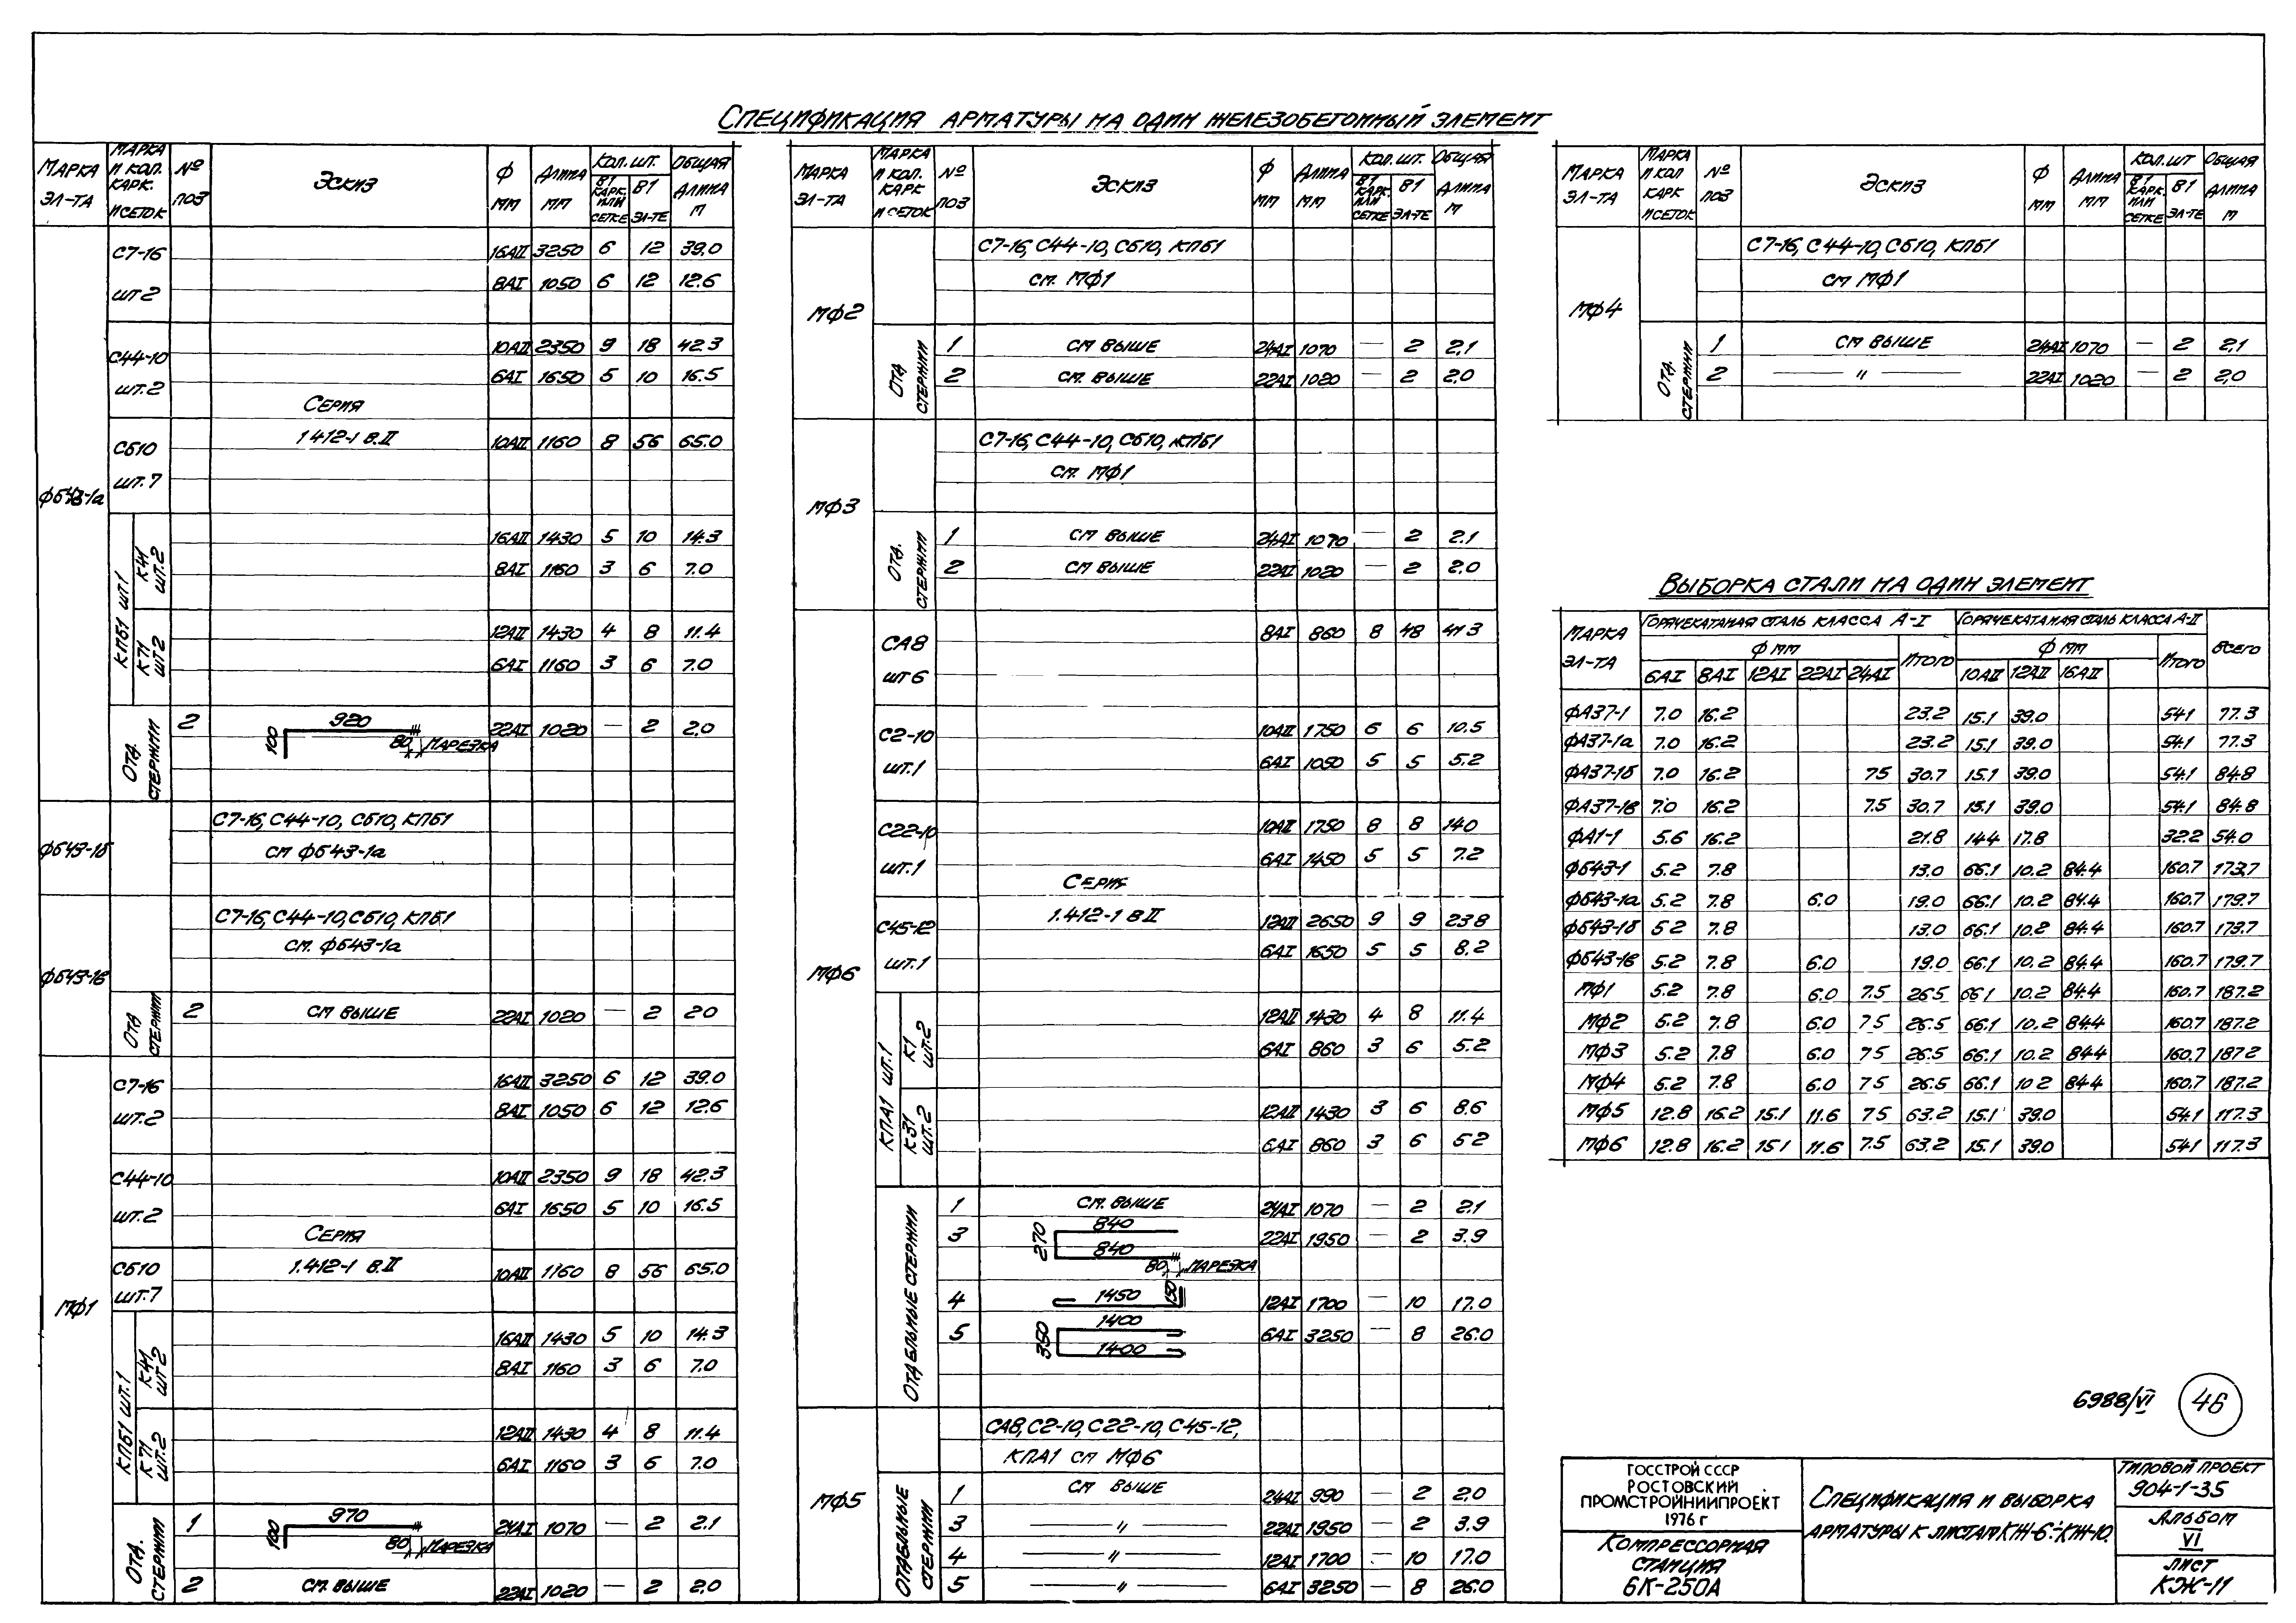 Спецификация арматуры на один железобетонный элемент
Марка эл-та | Марка и кол. карк. и сеток | № поз | Эскиз | Ф мм | Длина мм | Кол. шт. | в 1 карк. или сетке | в 1 эл-те | Общая длина м
ФБ43-1а
С7-16 шт 2
16АII 3250 6 12 39.0
8АI 1050 6 12 12.6
С44-10 шт.2
10АII 2350 9 18 42.3
6АI 1650 5 10 16.5
Серия
1.412-1 в.II
СБ10 шт.7
10АII 1160 8 56 65.0
КПБ1 шт1
К41 шт.2
16АII 1430 5 10 14.3
8АI 1160 3 6 7.0
К71 шт2
12АII 1430 4 8 11.4
6АI 1160 3 6 7.0
Отд. стержни
2 920 100 80 нарезка 22АI 1020 — 2 2.0
ФБ43-1б
С7-16, С44-10, СБ10, КПБ1
см ФБ43-1а
ФБ43-1в
С7-16, С44-10, СБ10, КПБ1
см. ФБ43-1а
Отд стержни
2 см выше 22АI 1020 — 2 2.0
МФ1
С7-16 шт.2
16АII 3250 6 12 39.0
8АI 1050 6 12 12.6
С44-10 шт.2
10АII 2350 9 18 42.3
6АI 1650 5 10 16.5
Серия
1.412-1 в.II
СБ10 шт.7
10АII 1160 8 56 65.0
КПБ1 шт.1
К41 шт2
16АII 1430 5 10 14.3
8АI 1160 3 6 7.0
К71 шт.2
12АII 1430 4 8 11.4
6АI 1160 3 6 7.0
Отд. стержни
1 970 100 80 нарезка 24АI 1070 — 2 2.1
2 см. выше 22АI 1020 — 2 2.0
Марка эл-та | Марка и кол. карк и сеток | № поз | Эскиз | Ф мм | Длина мм | Кол. шт. | в 1 карк. или сетке | в 1 эл-те | Общая длина м
МФ2
С7-16, С44-10, СБ10, КПБ1
см. МФ1
Отд стержни
1 см выше 24АI 1070 — 2 2.1
2 см. выше 22АI 1020 — 2 2.0
МФ3
С7-16, С44-10, СБ10, КПБ1
см. МФ1
Отд. стержни
1 см выше 24АI 1070 — 2 2.1
2 см выше 22АI 1020 — 2 2.0
МФ6
СА8 шт 6
8АI 860 8 48 41.3
С2-10 шт.1
10АII 1750 6 6 10.5
6АI 1050 5 5 5.2
С22-10 шт.1
10АII 1750 8 8 14.0
6АI 1450 5 5 7.2
Серия
1.412-1 в II
С45-12 шт.1
12АII 2650 9 9 23.8
6АI 1650 5 5 8.2
КПА1 шт.1
К1 шт.2
12АII 1430 4 8 11.4
6АI 860 3 6 5.2
К31 шт.2
12АII 1430 3 6 8.6
6АI 860 3 6 5.2
Отдельные стержни
1 см. выше 24АI 1070 — 2 2.1
3 840 270 840 80 нарезка 22АI 1950 — 2 3.9
4 1450 150 12АI 1700 — 10 17.0
5 1400 350 1400 6АI 3250 — 8 26.0
МФ5
СА8, С2-10, С22-10, С45-12,
КПА1 см МФ6
Отдельные стержни
1 см выше 24АI 990 — 2 2.0
3 — " — 22АI 1950 — 2 3.9
4 — " — 12АI 1700 — 10 17.0
5 — " — 6АI 3250 — 8 26.0
Марка эл-та | Марка и кол карк и сеток | № поз | Эскиз | Ф мм | Длина мм | Кол. шт | в 1 карк. или сетке | в 1 эл-те | Общая длина м
МФ4
С7-16, С44-10, СБ10, КПБ1
см МФ1
Отд. стержни
1 см выше 24АI 1070 — 2 2.1
2 — " — 22АI 1020 — 2 2.0
Выборка стали на один элемент
Марка эл-та | Горячекатаная сталь класса А-I | Горячекатаная сталь класса А-II | Всего
Ф мм | Итого | Ф мм | Итого
6АI 8АI 12АI 22АI 24АI 10АII 12АII 16АII
ФА37-1 7.0 16.2 23.2 15.1 39.0 54.1 77.3
ФА37-1а 7.0 16.2 23.2 15.1 39.0 54.1 77.3
ФА37-1б 7.0 16.2 7.5 30.7 15.1 39.0 54.1 84.8
ФА37-1в 7.0 16.2 7.5 30.7 15.1 39.0 54.1 84.8
ФА1-1 5.6 16.2 21.8 14.4 17.8 32.2 54.0
ФБ43-1 5.2 7.8 13.0 66.1 10.2 84.4 160.7 173.7
ФБ43-1а 5.2 7.8 6.0 19.0 66.1 10.2 84.4 160.7 179.7
ФБ43-1б 5.2 7.8 13.0 66.1 10.2 84.4 160.7 173.7
ФБ43-1в 5.2 7.8 6.0 19.0 66.1 10.2 84.4 160.7 179.7
МФ1 5.2 7.8 6.0 7.5 26.5 66.1 10.2 84.4 160.7 187.2
МФ2 5.2 7.8 6.0 7.5 26.5 66.1 10.2 84.4 160.7 187.2
МФ3 5.2 7.8 6.0 7.5 26.5 66.1 10.2 84.4 160.7 187.2
МФ4 5.2 7.8 6.0 7.5 26.5 66.1 10.2 84.4 160.7 187.2
МФ5 12.8 16.2 15.1 11.6 7.5 63.2 15.1 39.0 54.1 117.3
МФ6 12.8 16.2 15.1 11.6 7.5 63.2 15.1 39.0 54.1 117.3
6988/VI 46
ГОССТРОЙ СССР
РОСТОВСКИЙ
ПРОМСТРОЙНИИПРОЕКТ
1976 г
Компрессорная
станция
6К-250А
Спецификация и выборка
арматуры к листам КЖ-6÷КЖ-10.
Типовой проект
904-1-35
Альбом
VI
Лист
КЖ-11